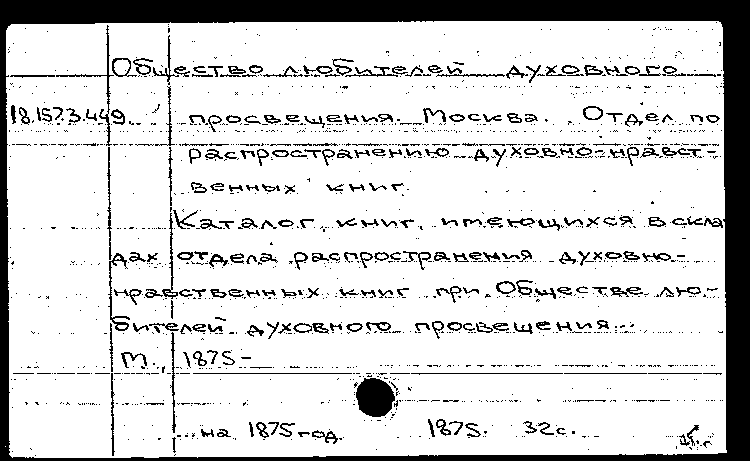 Общество любителей духовного
18.157.3.449. просвещения. Москва. Отдел по
распространению духовно-нравст-
венных книг.
Каталог книг, имеющихся в скла
дах отдела распространения духовно-
нравственных книг при Обществе лю-
бителей духовного просвещения...
М., 1875-
...на 1875 год. 1875. 32с.